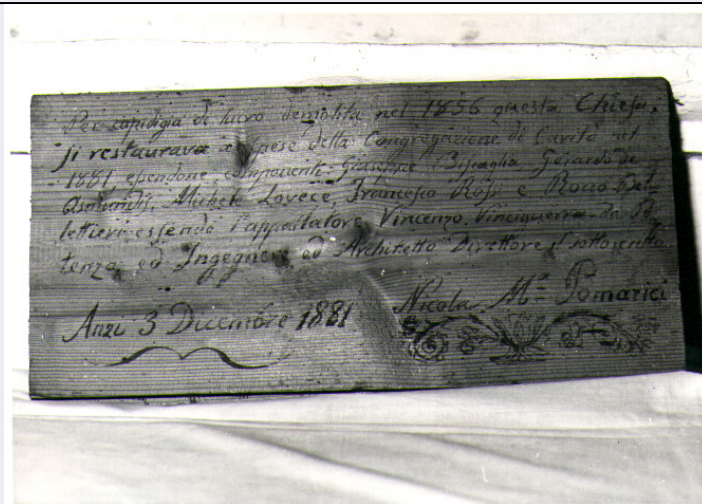 Per cupidigia di lucro demolita nel 1856 questa Chiesa,
si restaurava a spese della Congregazione di Carità nel
1881 essendone componenti Giuseppe Gerardo de
Michele Lovece, Francesco Rossi e Rocco Pel-
lettieri essendo l'appaltatore Vincenzo Vinciguerra da Po-
tenza, ed Ingegnere ed Architetto Direttore il sottoscritto
Nicola M.ª Pomarici
Anzi 3 Dicembre 1881